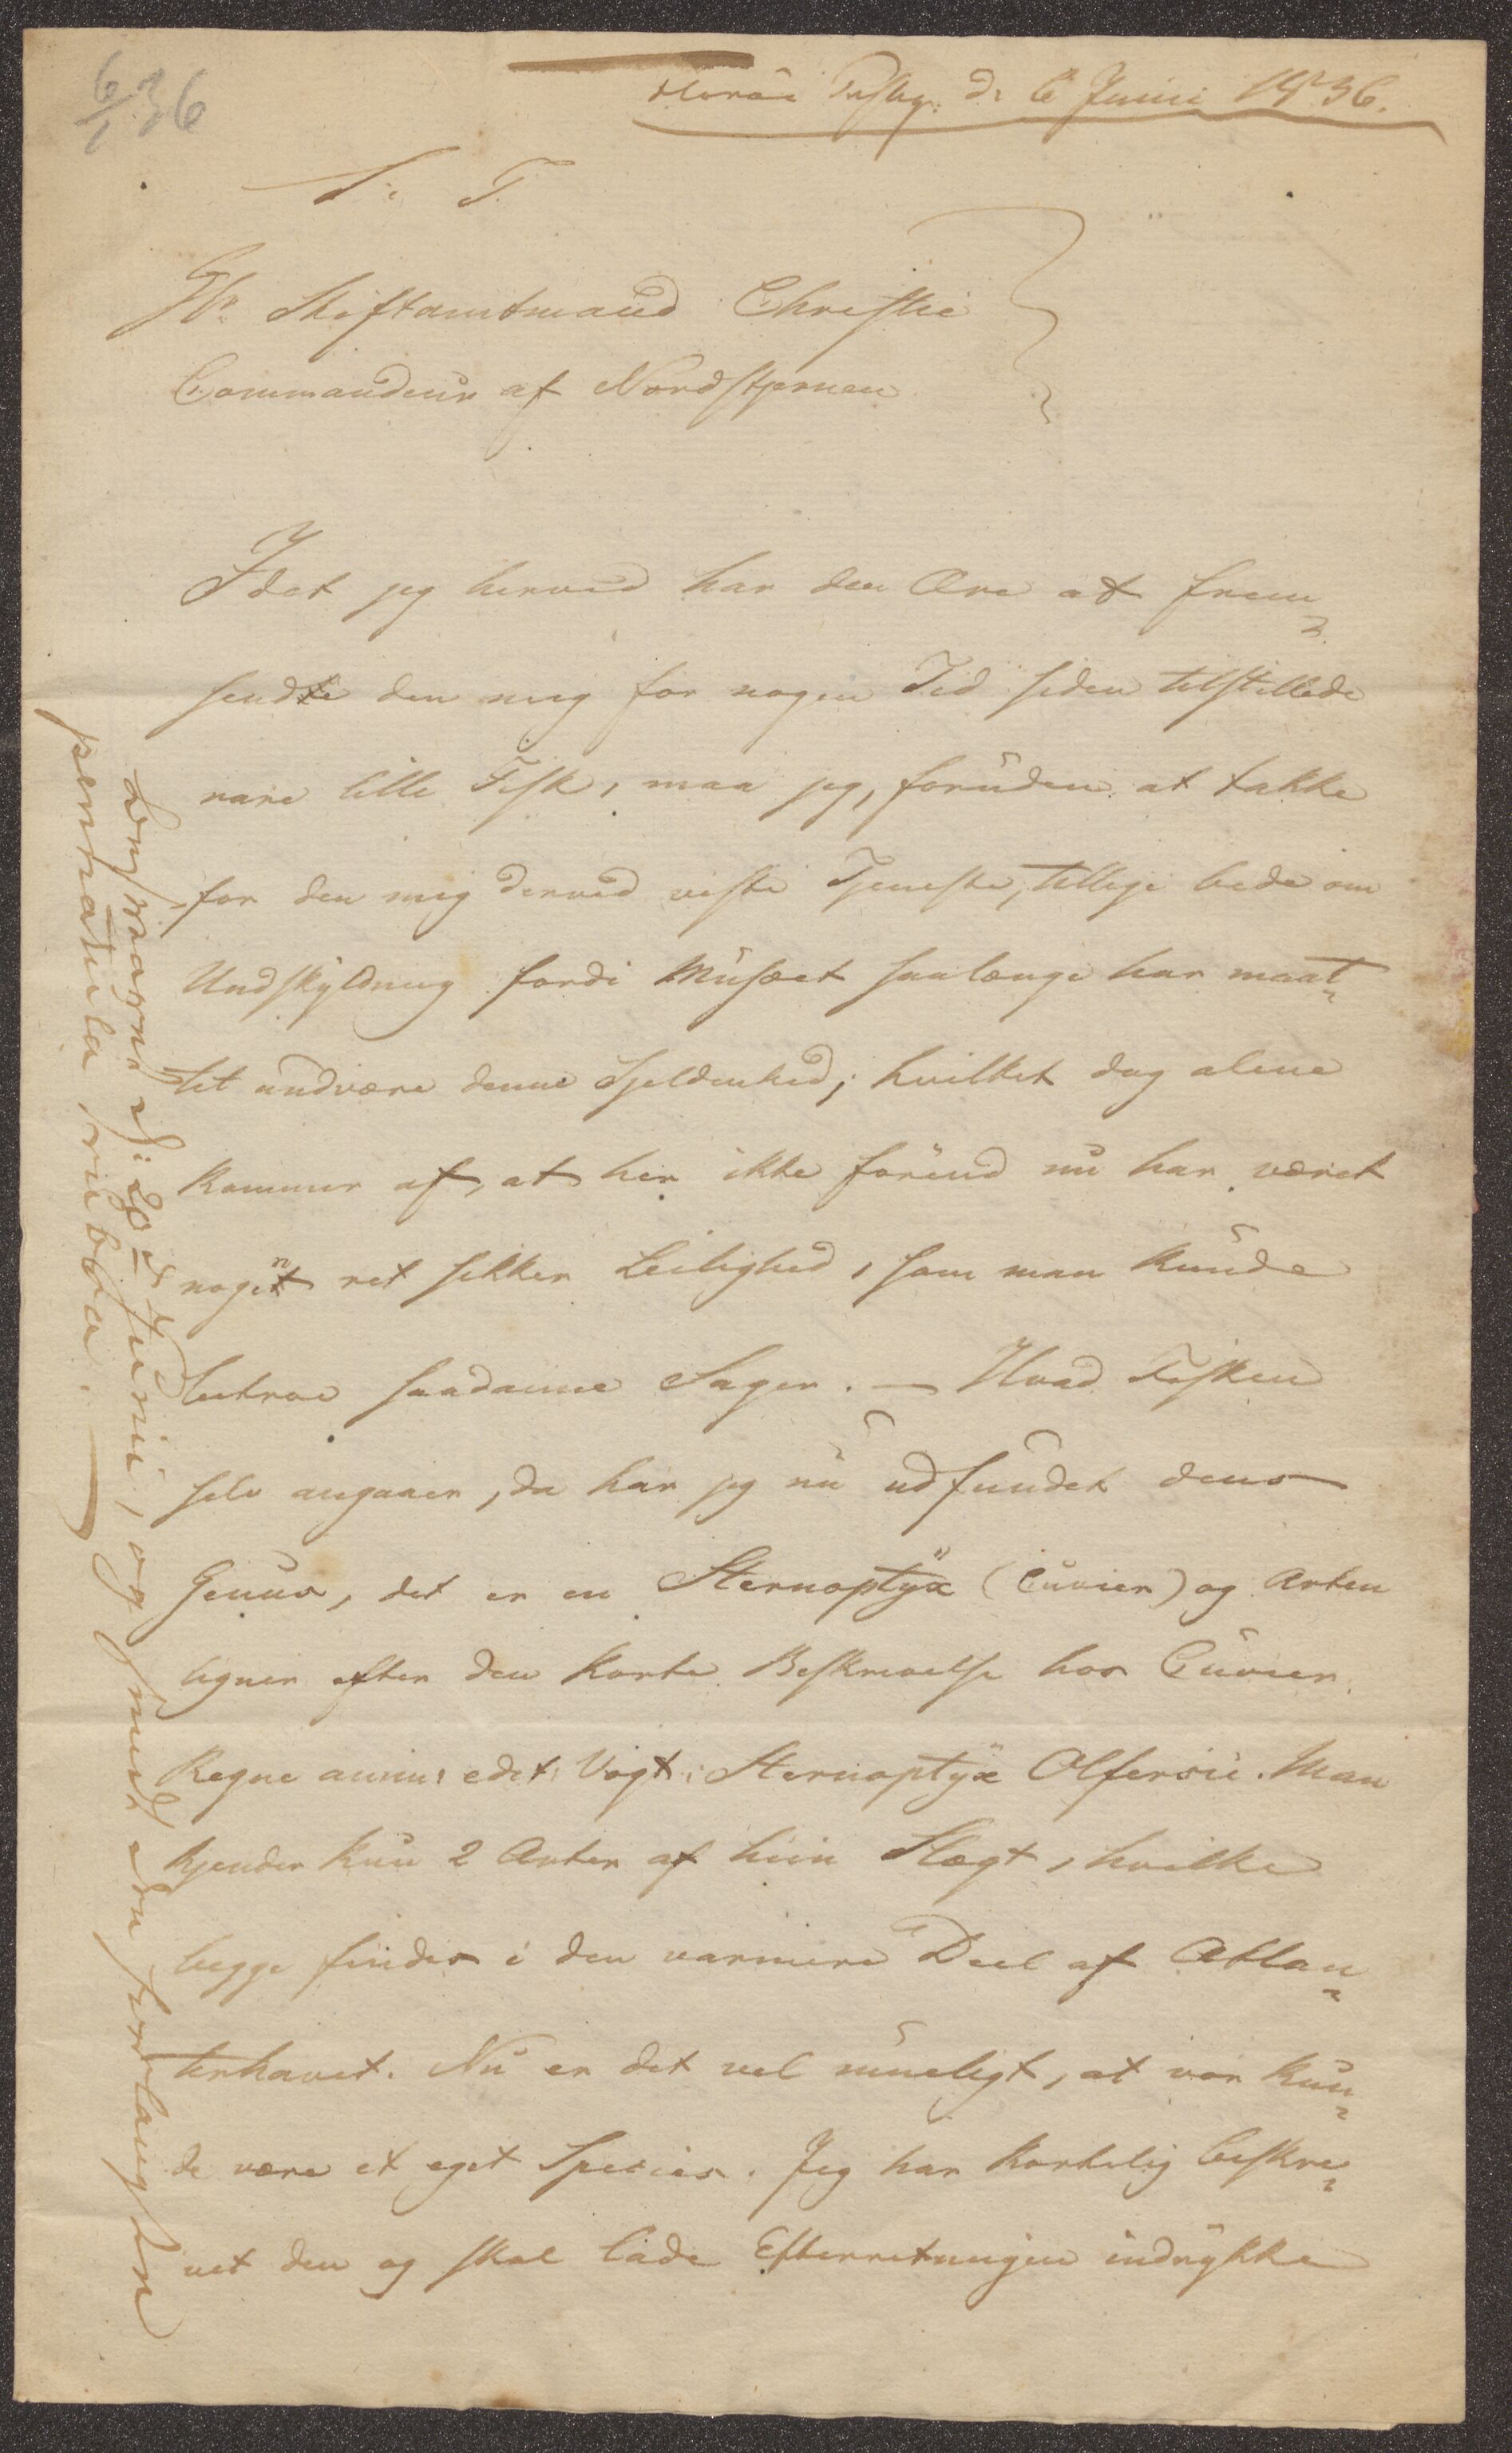 6/ 36
Florøe Præstg: d: 6 Junii 1836.
S: T.
Hr: Stiftamtmand Christie
Commandeur af Nordstjernen
Idet jeg herved har den Ære at frem-
sende den mig for nogen Tid siden tilstillede
rare lille Fisk, maa jeg, foruden at takke
for den mig derved viste Tjeneste, tillige bede om
Undskyldning fordi Musæet saalænge har maat-
tet undvære denne Sjeldenhed; hvilket dog alene
kommer af, at her ikke förend nu har været
nogen ret sikker Leilighed, som man kunde
betroe saadanne Sager. — Hvad Fisken
selv angaaer, da har jeg nu udfundet dens
Genus, det er en Sternoptÿx (Cuvier) og Arten
ligner efter den korte Beskrivelse hos Cuvier
Regne anim: edit: Voigt: Sternoptÿx Olfersii. Man
kjender kun 2 Arter af hiin Slægt, hvilke
begge findes i den varmere Deel af Atlan-
terhavet. Nu er det vel mueligt, at vor kun-
de være et eget Species. Jeg har kortelig beskre-
vet den og skal lade Efterretningen indrykke
 d: 20 d Junii, og den forlangte
pennatula rubra.